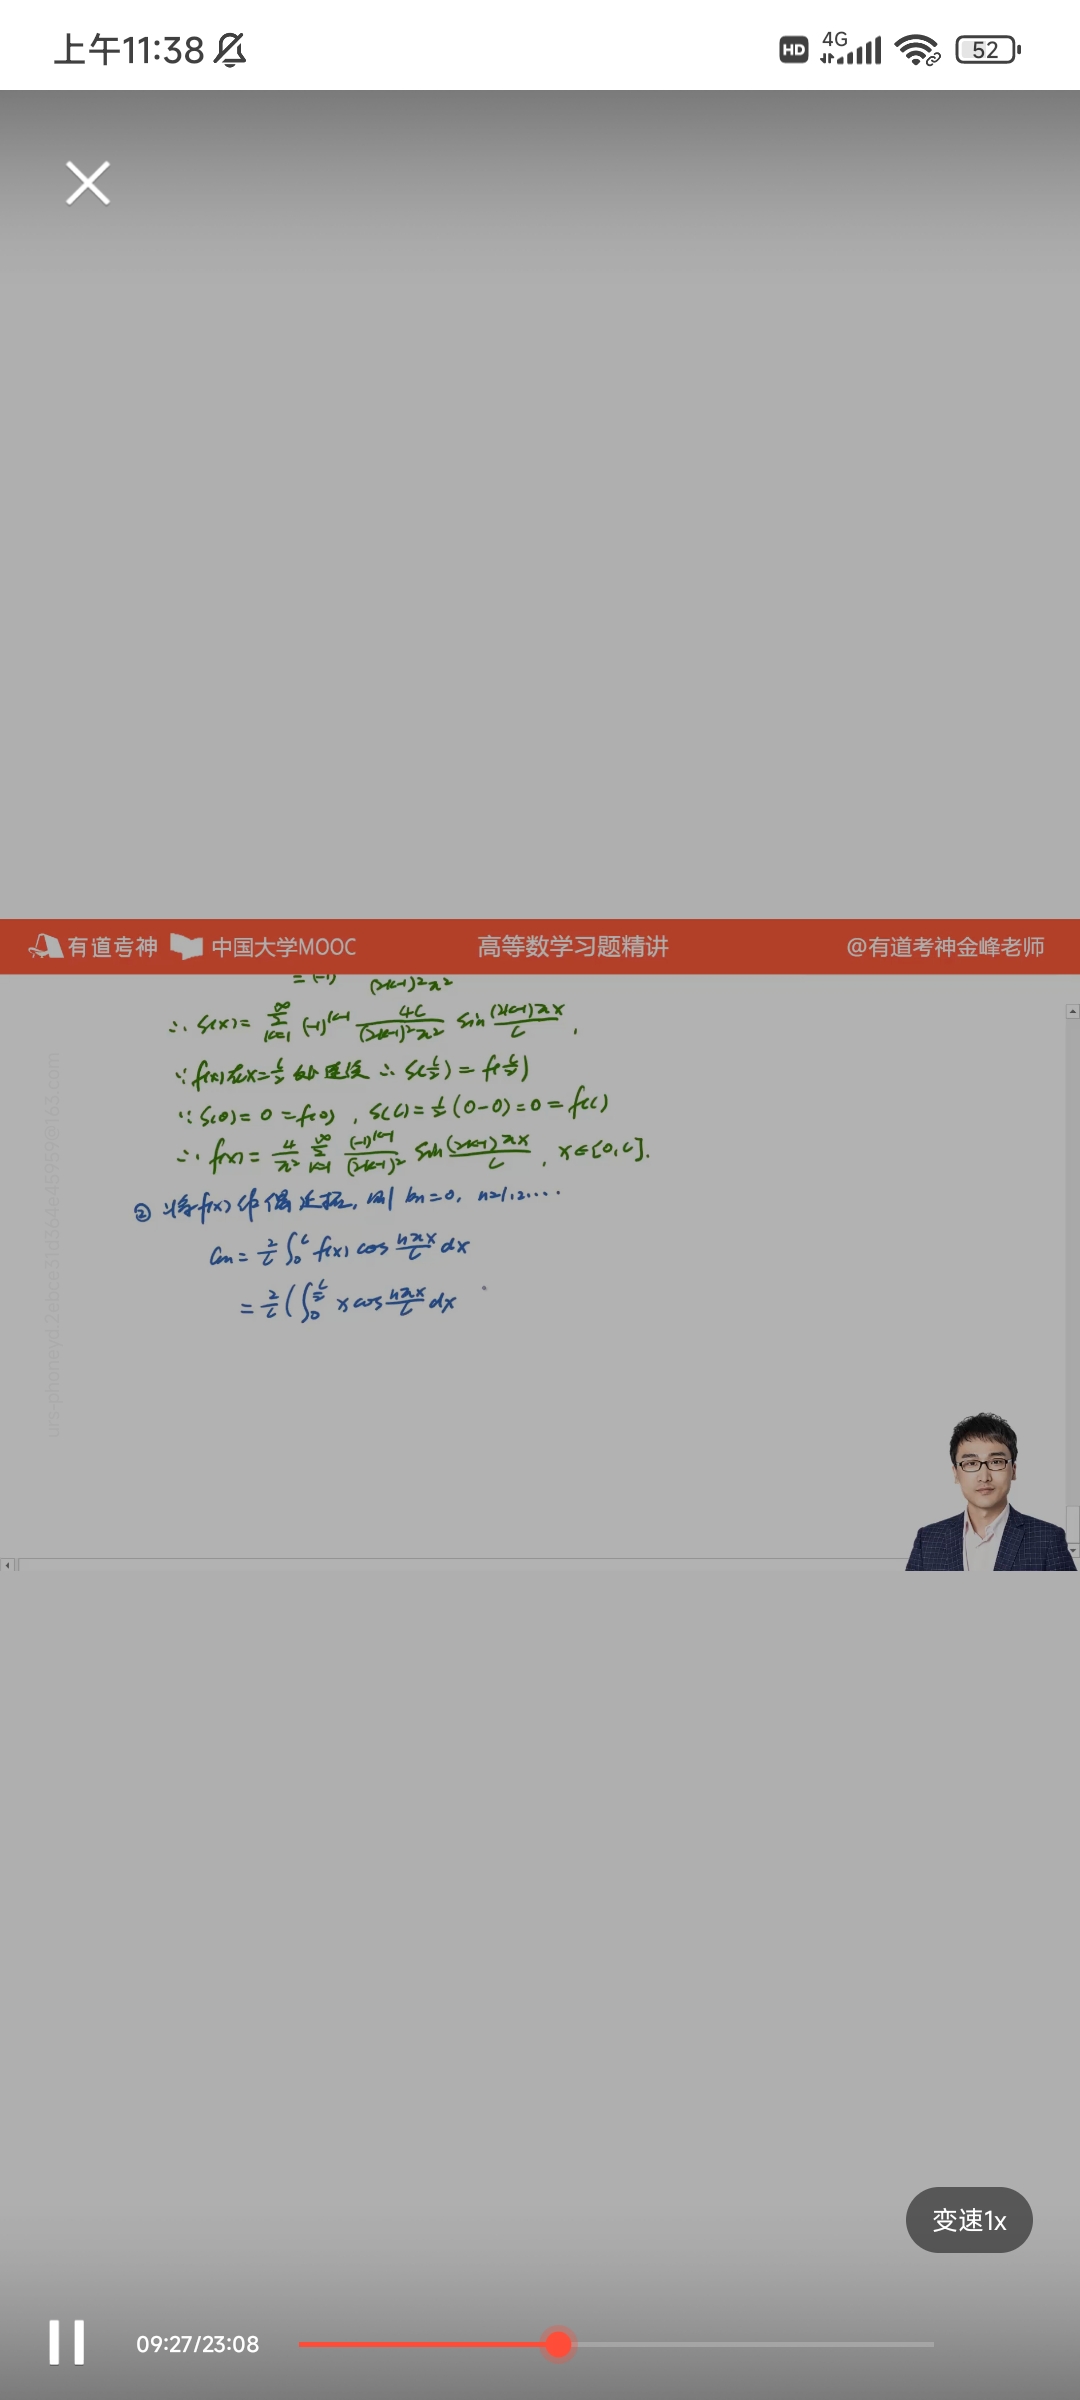 上午11:38 HD 4G 52
有道考神 中国大学MOOC 高等数学习题精讲 @有道考神金峰老师
= (-1) (2k-1)²π²
∴ S(x) = ∑_{k=1}^{∞} (-1)^{k-1} 4l/((2k-1)²π²) sin (2k-1)πx/l ,
∵ f(x)在x=l/2 处连续 ∴ S(l/2) = f(l/2)
∵ S(0) = 0 = f(0) , S(l) = 1/2 (0-0) = 0 = f(l)
∴ f(x) = 4l/π² ∑_{k=1}^{∞} (-1)^{k-1}/(2k-1)² sin (2k-1)πx/l , x∈[0,l].
② 将f(x)作偶延拓, 则 bn=0, n=1,2....
an = 2/l ∫_0^l f(x) cos nπx/l dx
= 2/l ( ∫_0^{l/2} x cos nπx/l dx
变速1x
09:27/23:08